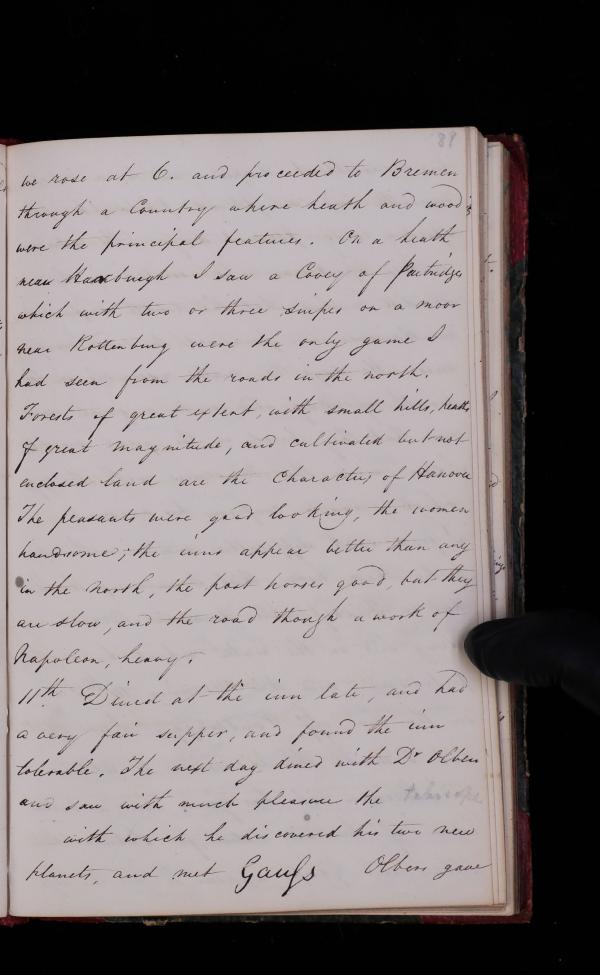 89
we rose at 6. and proceeded to Bremen
through a Country where heath and woods
were the principal features. On a heath
near Haarburgh I saw a Covey of Partridges
which with two or three snipes on a moor
near Rottenburg were the only game I
had seen from the roads in the north.
Forests of great extent, with small hills, heaths
of great magnitude, and cultivated but not
enclosed land are the characters of Hanover
The peasants were good looking, the women
handsome; the inns appear better than any
in the North, the post horses good, but they
are slow, and the road though a work of
Napoleon, heavy.
11th Dined at the inn late, and had
a very fair supper, and found the inn
tolerable. The next day dined with Dr Olbers
and saw with much pleasure the telescope
with which he discovered his two new
planets, and met Gauſs Olbers gave